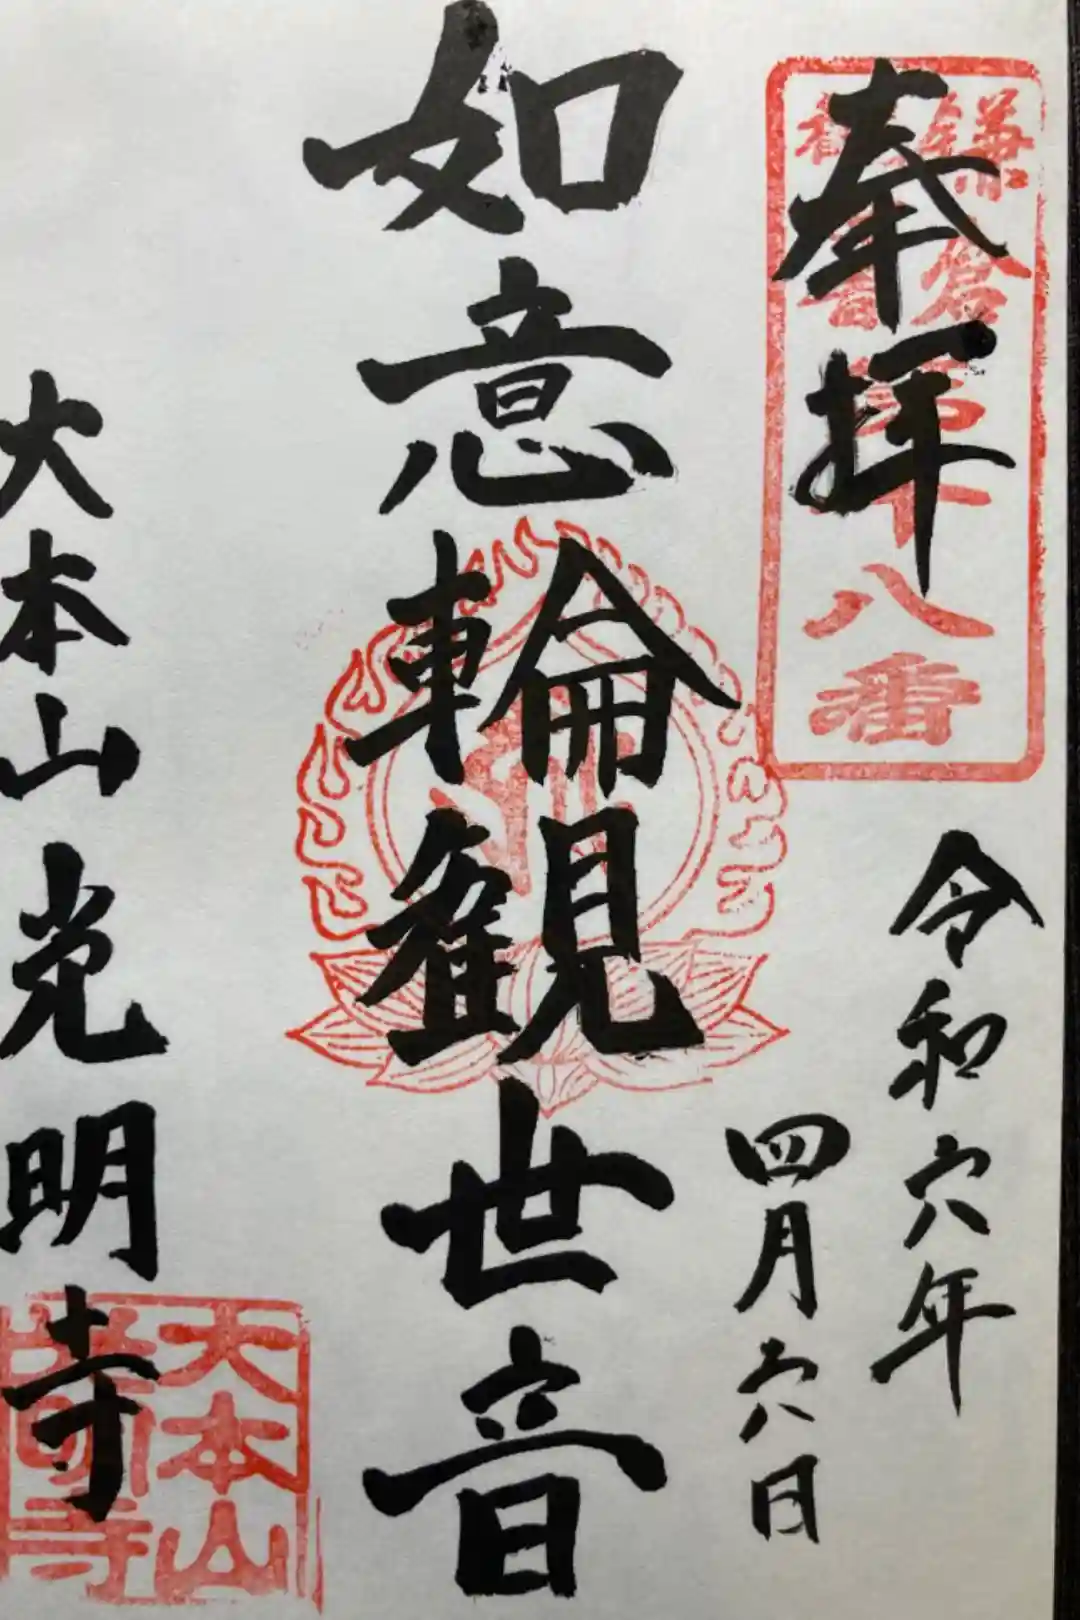 奉拝
鎌倉
観音
第十八番
令和六年
四月六日
如意輪観世音
大本山光明寺
大本山
光明寺